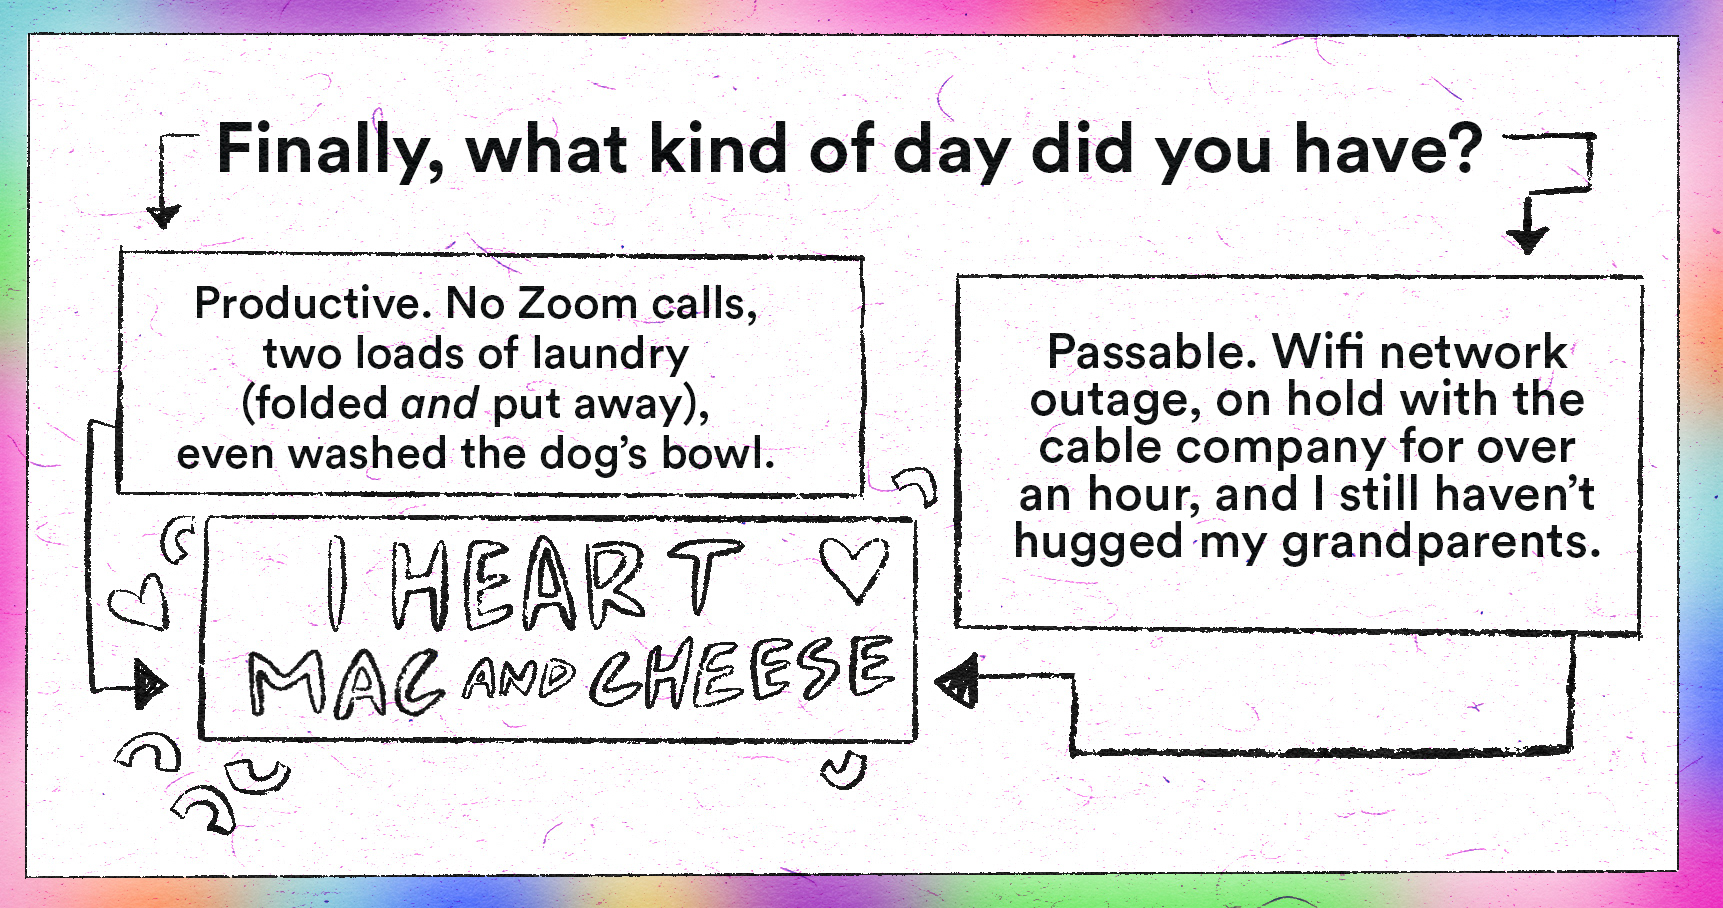 Finally, what kind of day did you have?
Productive. No Zoom calls,
two loads of laundry
(folded and put away),
even washed the dog’s bowl.
Passable. Wifi network
outage, on hold with the
cable company for over
an hour, and I still haven’t
hugged my grandparents.
I HEART
MAC AND CHEESE